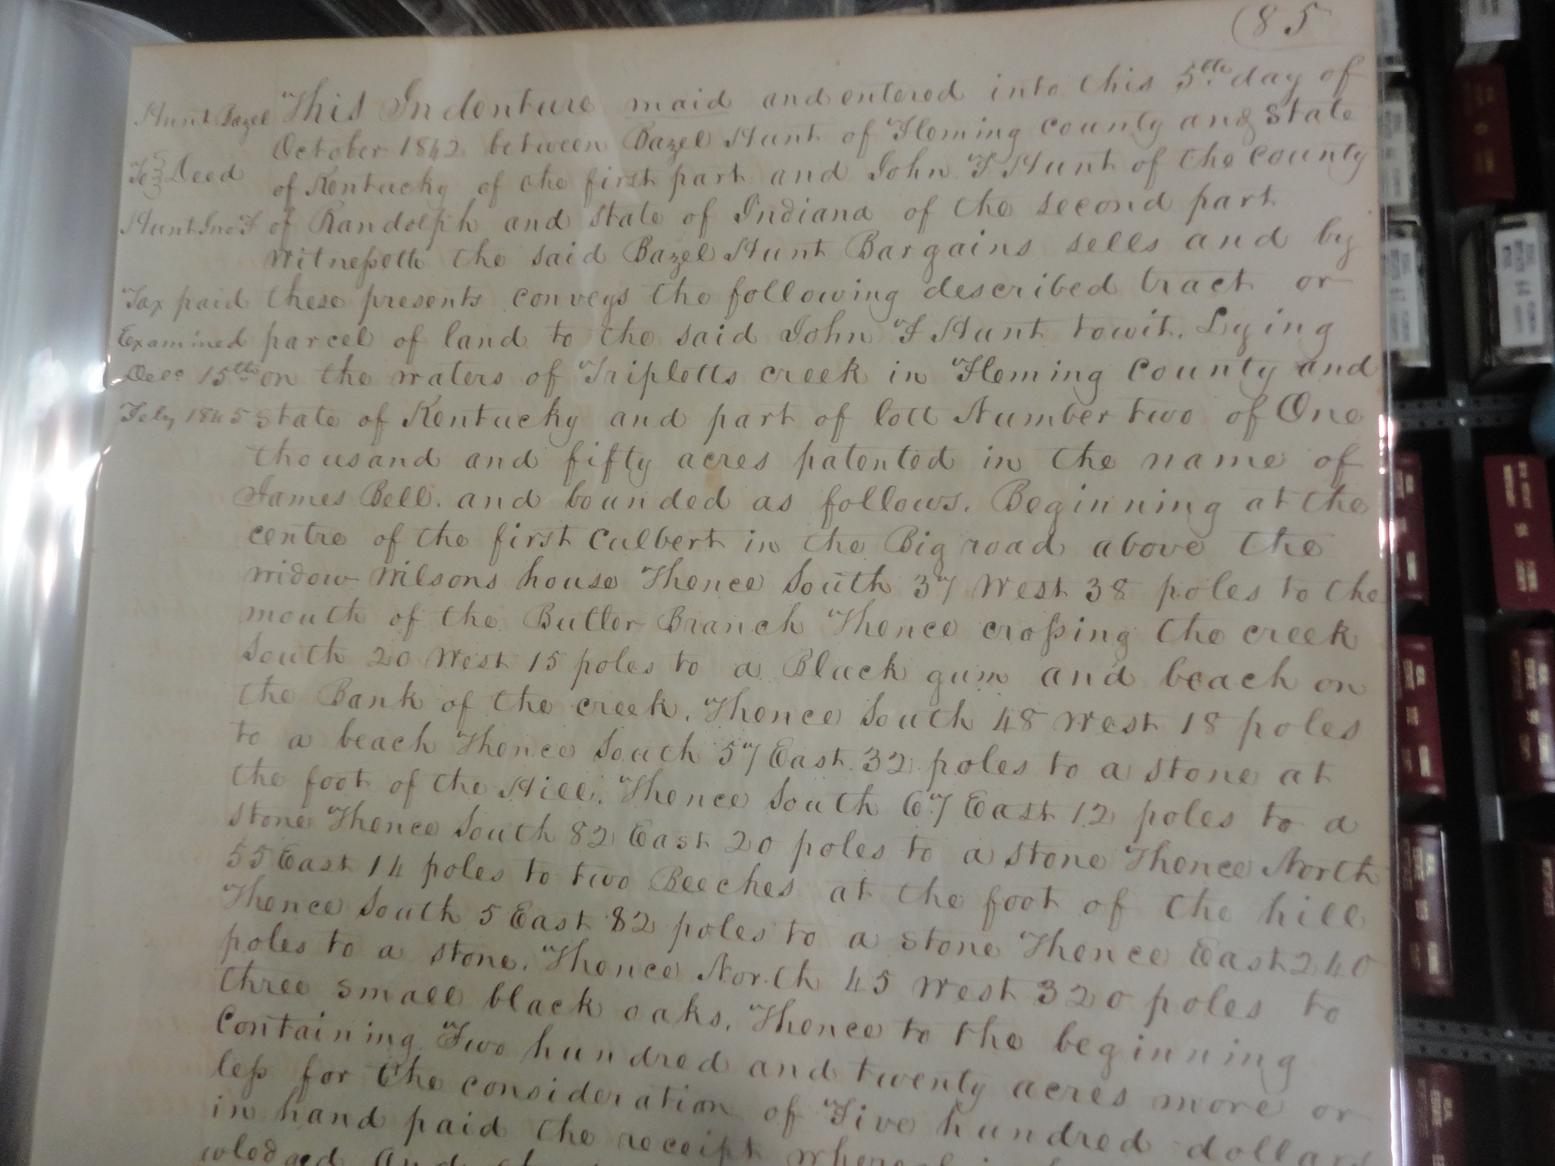 85
Hunt Bazel This Indenture maid and entered into this 5th day of
October 1842 between Bazel Hunt of Fleming county and State
To Deed of Kentucky of the first part and John F Hunt of the County
Hunt Jno F of Randolph and state of Indiana of the second part
Witnesseth the said Bazel Hunt Bargains sells and by
Tax paid these presents conveys the following described tract or
Examined parcel of land to the said John F Hunt towit. Lying
Dec 15th on the waters of Tripletts creek in Fleming County and
1845 State of Kentucky and part of lott Number two of One
thousand and fifty acres patented in the name of
James Bell. and bounded as follows. Beginning at the
centre of the first Culbert in the Big road above the
widow Wilsons house Thence South 37 West 38 poles to the
mouth of the Butler Branch Thence crossing the creek
South 20 West 15 poles to a Black gum and beach on
the Bank of the creek. Thence South 48 West 18 poles
to a beach Thence South 57 East 32 poles to a stone at
the foot of the Hill. Thence South 67 East 12 poles to a
stone Thence South 82 East 20 poles to a stone Thence North
55 East 14 poles to two Beeches at the foot of the hill
Thence South 5 East 82 poles to a stone Thence East 240
poles to a stone. Thence North 45 West 320 poles to
three small black oaks. Thence to the beginning
Containing Two hundred and twenty acres more or
less for the consideration of Five hundred dollars
in hand paid the receipt whereof is